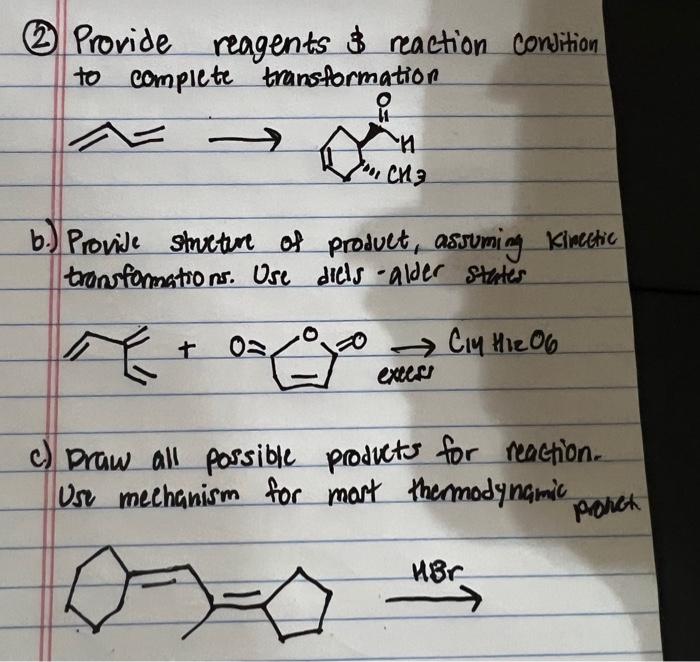 ② Provide reagents & reaction condition
to complete transformation
O
H
CH3
b.) Provide structure of product, assuming kinectic
transformations. Use diels-alder states
+ O= O =O → C14H12O6
excess
c) Draw all possible products for reaction.
Use mechanism for most thermodynamic
product
HBr